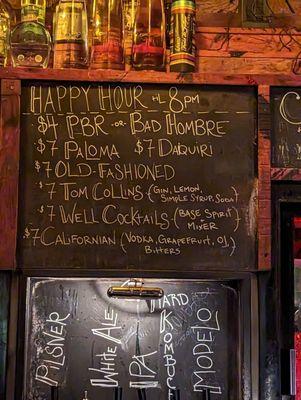 HAPPY HOUR TIL 8PM
$4 PBR OR BAD HOMBRE
$7 PALOMA $7 DAIQURI
$7 OLD-FASHIONED
$7 TOM COLLINS (GIN, LEMON, SIMPLE SYRUP, SODA)
$7 WELL COCKTAILS (BASE SPIRIT & MIXER)
$7 CALIFORNIAN (VODKA, GRAPEFRUIT, OJ, BITTERS)
PILSNER
WHITE ALE
IPA
HARD
MOPELO